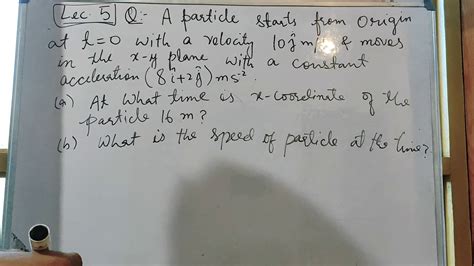 Lec. 5 Q:- A particle starts from origin
at t=0 with a velocity 10ĵ m/s & moves
in the x-y plane with a constant
acceleration (8î+2ĵ) ms⁻².
(a) At what time is x-coordinate of the
particle 16 m?
(b) What is the speed of particle at the time?